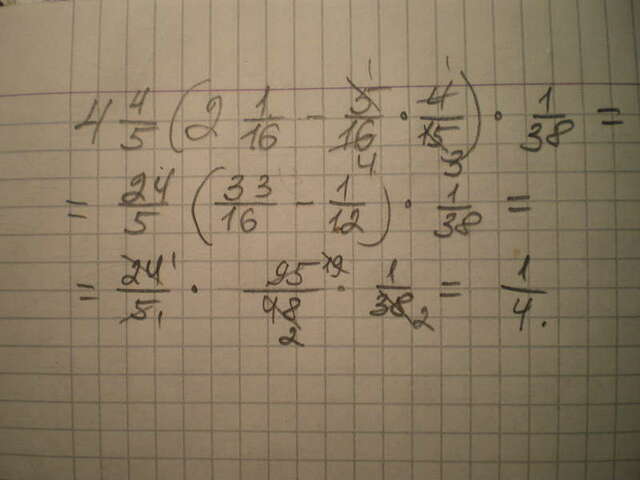 4 4/5 (2 1/16 - 5/16 · 4/15) · 1/38 =
= 24/5 (33/16 - 1/12) · 1/38 =
= 24/5 · 95/48 · 1/38 = 1/4.